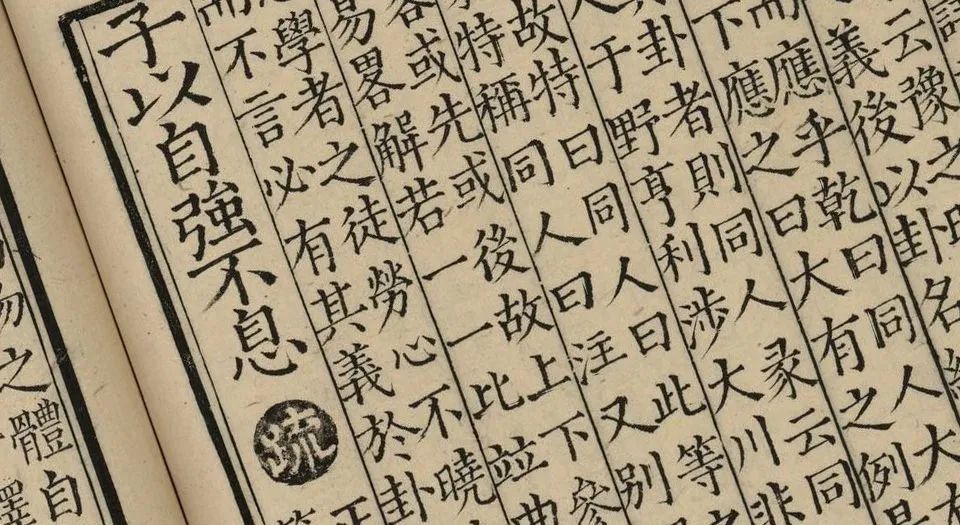 云豫之
義後以卦名
而應乎乾曰同人大
下應之曰大有之例
卦者則同人彖云同
人于野亨利涉大川非
故特曰同人曰此等
特稱同人曰注又別
或先或後故上下參
易畧解若一一比竝曲
學者之徒勞心不曉
而不言必有其義於卦
子以自強不息
疏
體自
勿之